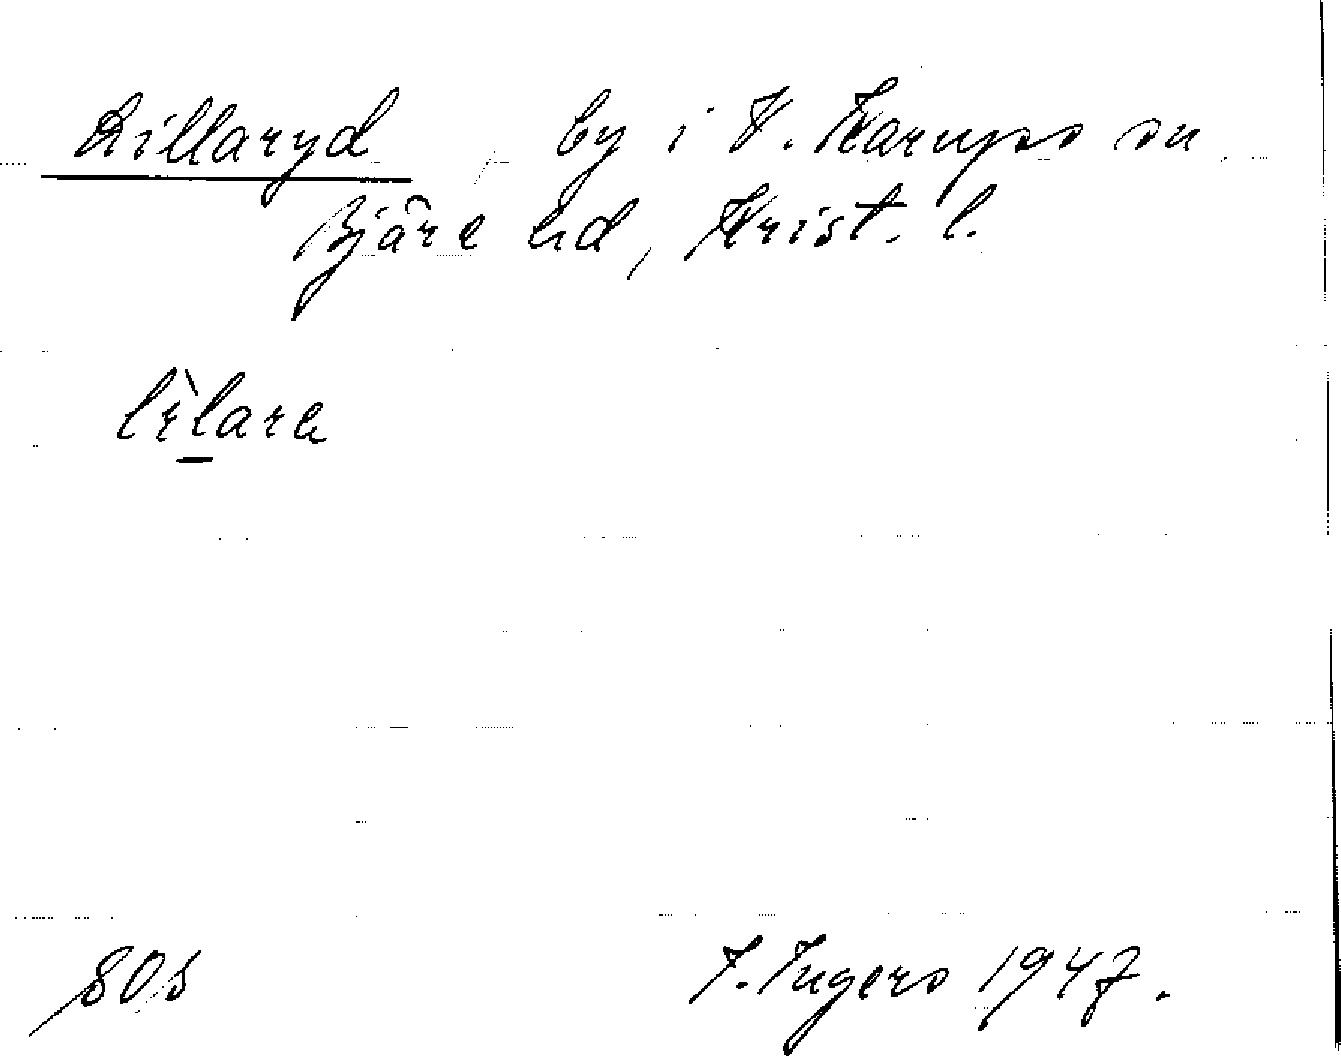 Lillaryd by i V. Karups sn
Bjäre hd, Krist. l.
lìlara
I. Ingers 1947.